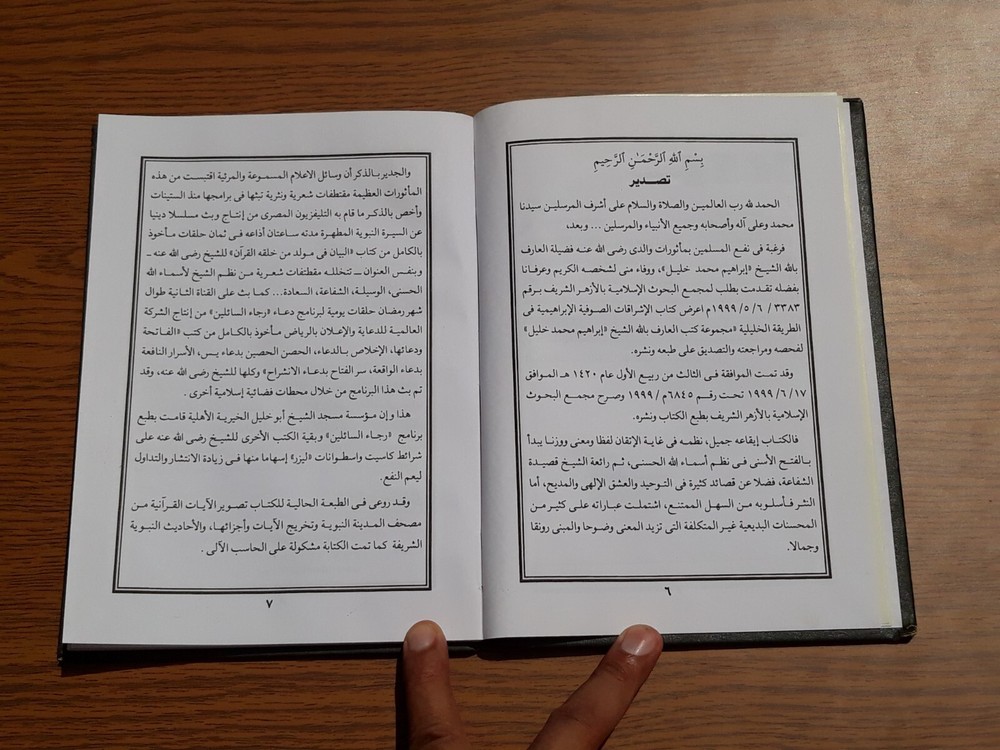 بِسْمِ ٱللَّهِ ٱلرَّحْمَـٰنِ ٱلرَّحِيمِ
تصـدير
الحمد لله رب العالميـن والصلاة والسلام على أشرف المرسليـن سيدنا
محمد وعلى آله وأصحابه وجميع الأنبياء والمرسلين ... وبعد،
فرغبة فى نفع المسلمين بمأثورات والدى رضى الله عنه فضيلة العارف
بالله الشيـخ «إبراهيم محمد خليل»، ووفاء منى لشخصه الكريم وعرفانا
بفضله تقدمت بطلب لمجمع البحوث الإسلامية بالأزهر الشريف برقم
٣٣٨٣ / ٦ /٥ /١٩٩٩م اعرض كتاب الإشراقات الصوفية الإبراهيمية فى
الطريقة الخليلية «مجموعة كتب العارف بالله الشيخ «إبراهيم محمد خليل»
لفحصه ومراجعته والتصديق على طبعه ونشره.
وقد تمت الموافقة فى الثالث من ربيع الأول عام ١٤٢٠ هـ الموافق
١٧ /٦ /١٩٩٩ تحت رقم ٦٨٤٥م / ١٩٩٩ وصرح مجمع البحوث
الإسلامية بالأزهر الشريف بطبع الكتاب ونشره.
فالكتـاب إيقاعه جميل، نظمـه فى غايـة الإتقان لفظا ومعنى ووزنـا يبدأ
بـالفتـح الأسنى فـى نظـم أسمـاء الله الحسنى، ثـم رائعة الشيـخ قصيـدة
الشفاعة، فضلا عن قصائد كثيرة فى التوحيد والعشق الإلهى والمديح، أما
النثر فـأسلـوبه مـن السهـل الممتنـع، اشتملـت عباراته على كثيـر مـن
المحسنات البديعية غيـر المتكلفة التى تزيد المعنى وضوحا والمبنى رونقا
وجمالا.
٦
والجدير بـالذكر أن وسائل الاعلام المسموعة والمرئية اقتبسـت من هذه
المأثورات العظيمة مقتطفات شعرية ونثرية تبثها فى برامجها منذ الستينات
وأخص بالذكـر ما قام به التليفزيون المصرى من إنتاج وبث مسلـسـلا دينيا
عن السيرة النبوية المطهـرة مدته ساعتان أذاعه فـى ثمان حلقات مـأخوذ
بالكامل من كتاب «البيان فى مولد من خلقه القرآن» للشيخ رضى الله عنه ــ
وبنفس العنوان ــ تتخللـه مقتطفات شعرية مـن نظم الشيخ لأسماء الله
الحسنى، الوسيلة، الشفاعة، السعادة... كمـا بث على القناة الثانية طوال
شهر رمضان حلقات يومية لبرنامج دعاء «رجاء السائلين» من إنتاج الشركة
العالميـة للدعاية والإعلان بالرياض مـأخوذ بالكامل من كتب «الفـاتحة
ودعائها، الإخلاص بـالدعاء، الحصن الحصين بدعاء يـس، الأسرار النافعة
بدعاء الواقعة، سر الفتاح بدعـاء الانشراح» وكلها للشيخ رضى الله عنه، وقد
تم بث هذا البرنامج من خلال محطات فضائية إسلامية أخرى .
هذا وإن مـؤسسة مسجد الشيخ أبو خليل الخيريـة الأهلية قامت بطبع
برنامج «رجـاء السائلين» وبقية الكتب الأخرى للشيخ رضى الله عنه على
شرائط كاسيت واسطوانات «ليزر» إسهاما منها فـى زيادة الانتشار والتداول
ليعم النفع.
وقـد روعى فى الطبعـة الحاليـة للكتـاب تصوير الآيات القـرآنية مـن
مصحف المـدينة النبويـة وتخريج الآيـات وأجزائهـا، والأحاديث النبـوية
الشريفة كما تمت الكتابة مشكولة على الحاسب الآلى .
٧